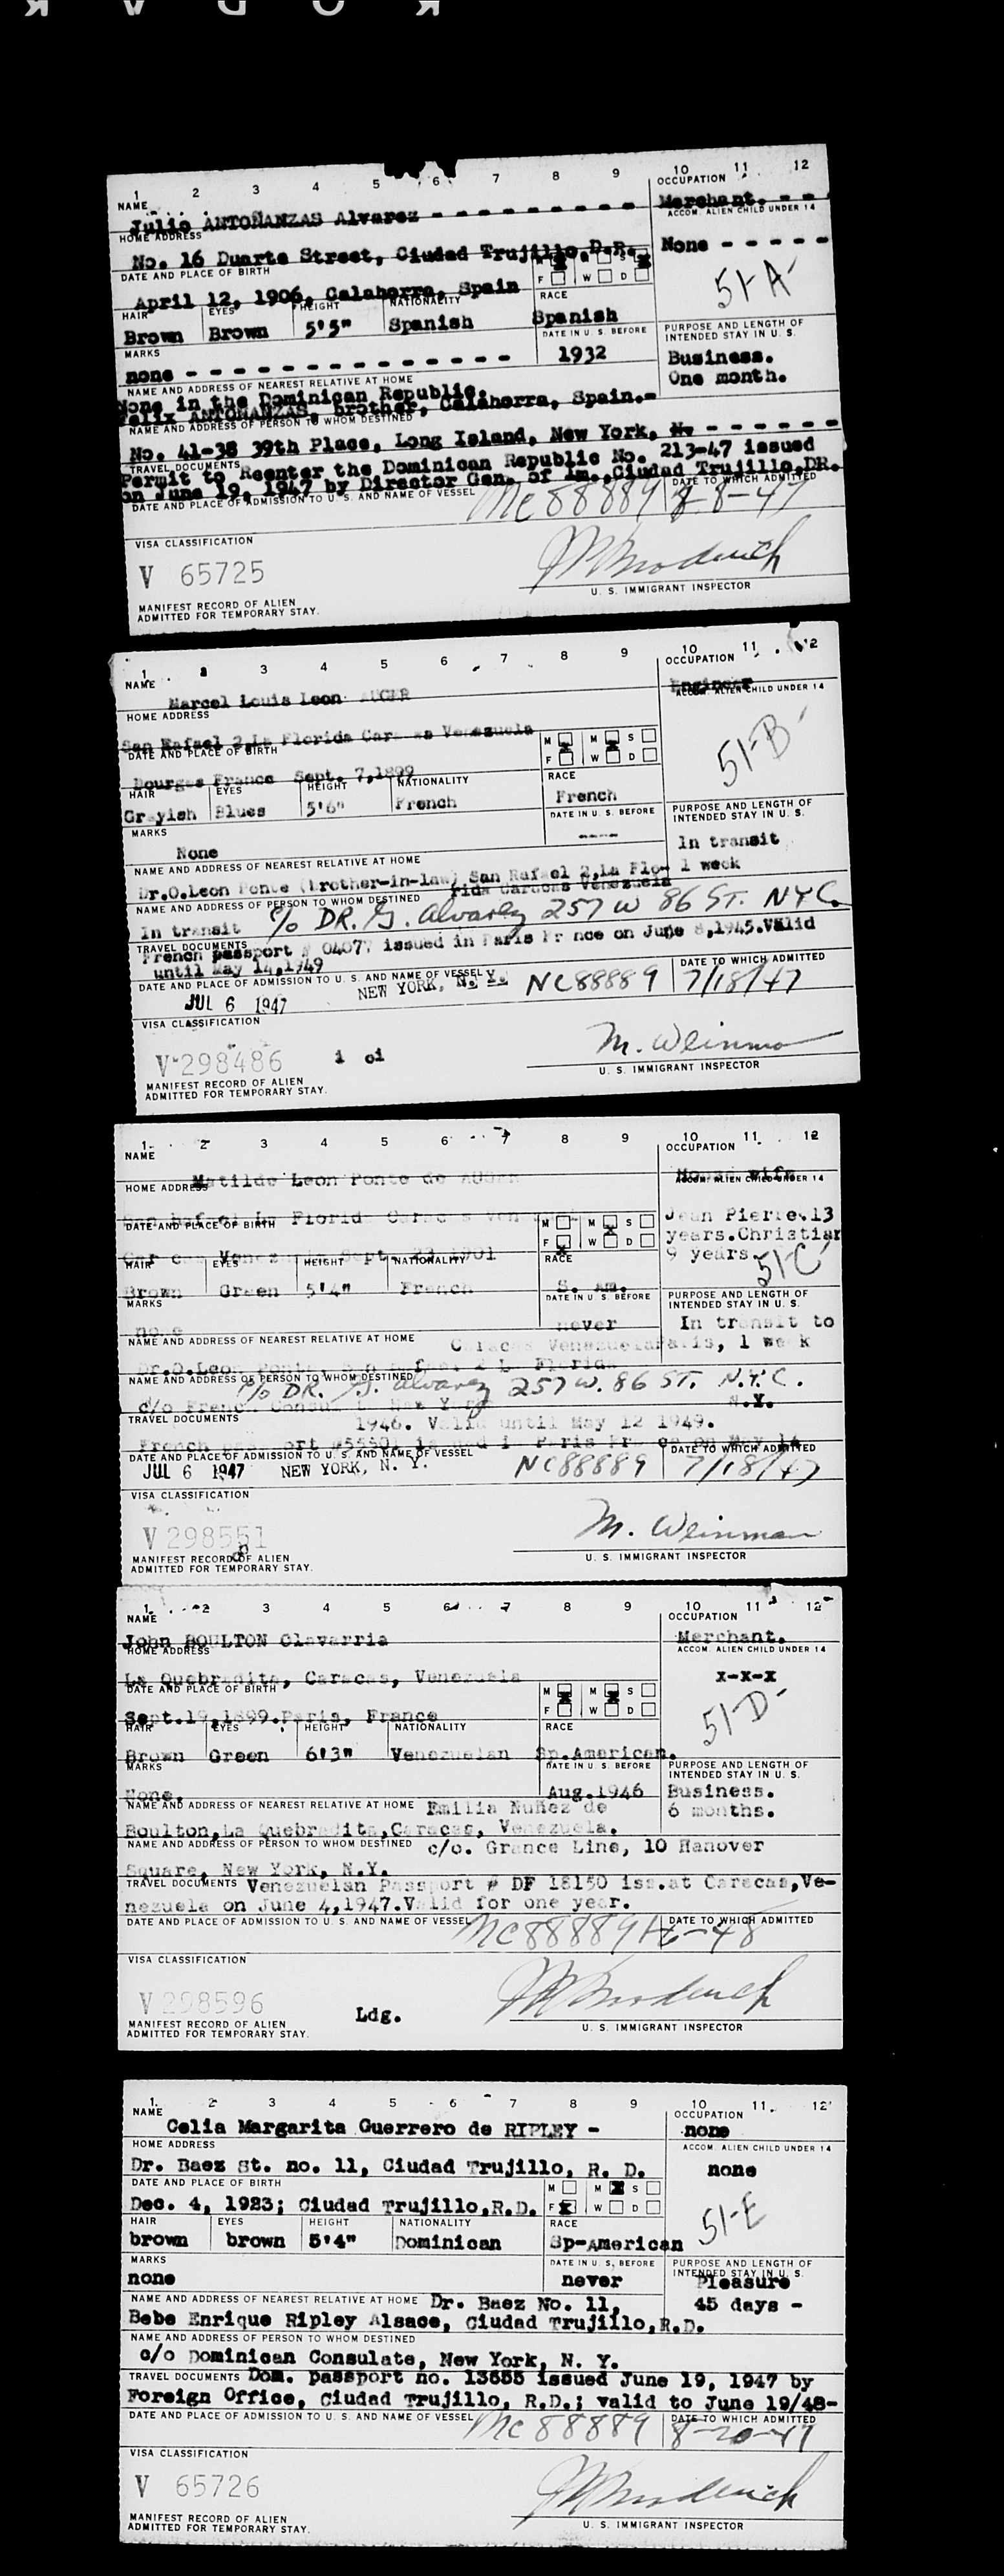 K O D A K
1 2 3 4 5 6 7 8 9 10 11 12
NAME OCCUPATION
Julio ANTOÑANZAS Alvarez - - - - - - - - - - Merchant. - -
HOME ADDRESS ACCOM. ALIEN CHILD UNDER 14
No. 16 Duarte Street, Ciudad Trujillo, D.R. None - - - - -
DATE AND PLACE OF BIRTH F W D
April 12, 1906, Calahorra, Spain 51-A
HAIR EYES HEIGHT NATIONALITY RACE
Brown Brown 5'5" Spanish Spanish
MARKS DATE IN U. S. BEFORE PURPOSE AND LENGTH OF INTENDED STAY IN U. S.
none - - - - - - - - - - - - - 1932 Business.
One month.
NAME AND ADDRESS OF NEAREST RELATIVE AT HOME
None in the Dominican Republic.
Felix ANTOÑANZAS, brother, Calahorra, Spain.-
NAME AND ADDRESS OF PERSON TO WHOM DESTINED
No. 41-38 39th Place, Long Island, New York, - - - - - -
TRAVEL DOCUMENTS
Permit to Reenter the Dominican Republic No. 213-47 issued
on June 19, 1947 by Director Gen. of Im., Ciudad Trujillo, DR.
DATE AND PLACE OF ADMISSION TO U. S. AND NAME OF VESSEL DATE TO WHICH ADMITTED
NC 88889 8-8-47
VISA CLASSIFICATION
V 65725
U. S. IMMIGRANT INSPECTOR
MANIFEST RECORD OF ALIEN
ADMITTED FOR TEMPORARY STAY.
1 2 3 4 5 6 7 8 9 10 11 12
NAME OCCUPATION
Marcel Louis Leon AUGER Engineer
HOME ADDRESS ACCOM. ALIEN CHILD UNDER 14
San Rafael 2, La Florida Caracas Venezuela
DATE AND PLACE OF BIRTH M M S
F W D 51-B
Bourges France Sept. 7, 1899
HAIR EYES HEIGHT NATIONALITY RACE
Grayish Blues 5'6" French French
MARKS DATE IN U. S. BEFORE PURPOSE AND LENGTH OF INTENDED STAY IN U. S.
None ---- In transit
NAME AND ADDRESS OF NEAREST RELATIVE AT HOME 1 week
Dr.O.Leon Ponte (brother-in-law) San Rafael 2, La Flo-
rida Caracas Venezuela
NAME AND ADDRESS OF PERSON TO WHOM DESTINED
In transit c/o DR. G. Alvarez 257 W 86 ST. NYC.
TRAVEL DOCUMENTS
French passport # 0407 issued in Paris France on June 8, 1945. Valid
until May 14, 1949
DATE AND PLACE OF ADMISSION TO U. S. AND NAME OF VESSEL DATE TO WHICH ADMITTED
JUL 6 1947 NEW YORK, N. Y. NC88889 7/18/47
VISA CLASSIFICATION
V-298486 1 of M. Weinman
U. S. IMMIGRANT INSPECTOR
MANIFEST RECORD OF ALIEN
ADMITTED FOR TEMPORARY STAY.
1 2 3 4 5 6 7 8 9 10 11 12
NAME OCCUPATION
Matilde Leon Ponte de AUGER House wife
HOME ADDRESS ACCOM. ALIEN CHILD UNDER 14
San Rafael La Florida Caracas Venezuela Jean Pierre.13
DATE AND PLACE OF BIRTH M M S years.Christian
F W D 9 years 51-C
Caracas Venezuela Sept. 23 1901
HAIR EYES HEIGHT NATIONALITY RACE
Brown Green 5'4" French S. Am.
MARKS DATE IN U. S. BEFORE PURPOSE AND LENGTH OF INTENDED STAY IN U. S.
none never In transit to
NAME AND ADDRESS OF NEAREST RELATIVE AT HOME Caracas Venezuela Paris, 1 week
Dr.O.Leon Ponte, San Rafael 2 La Florida
NAME AND ADDRESS OF PERSON TO WHOM DESTINED
c/o DR. G. Alvarez 257 W. 86 ST. N.Y.C.
c/o French Consulat New York N.Y.
TRAVEL DOCUMENTS 1946. Valid until May 12 1949.
French passport issued in Paris France on May 14
DATE AND PLACE OF ADMISSION TO U. S. AND NAME OF VESSEL DATE TO WHICH ADMITTED
JUL 6 1947 NEW YORK, N. Y. NC88889 7/18/47
VISA CLASSIFICATION
V 298551 M. Weinman
U. S. IMMIGRANT INSPECTOR
MANIFEST RECORD OF ALIEN
ADMITTED FOR TEMPORARY STAY.
1 2 3 4 5 6 7 8 9 10 11 12
NAME OCCUPATION
John BOULTON Olavarria Merchant.
HOME ADDRESS ACCOM. ALIEN CHILD UNDER 14
La Quebradita, Caracas, Venezuela X-X-X
DATE AND PLACE OF BIRTH M M S
F W D 51-D
Sept.19,1899.Paris, France
HAIR EYES HEIGHT NATIONALITY RACE
Brown Green 6'3" Venezuelan Sp.American.
MARKS DATE IN U. S. BEFORE PURPOSE AND LENGTH OF INTENDED STAY IN U. S.
None. Aug.1946 Business.
6 months.
NAME AND ADDRESS OF NEAREST RELATIVE AT HOME Emilia Nuñez de
Boulton,La Quebradita,Caracas, Venezuela.
NAME AND ADDRESS OF PERSON TO WHOM DESTINED c/o. Grance Line, 10 Hanover
Square, New York, N.Y.
TRAVEL DOCUMENTS Venezuelan Passport # DF 18150 iss.at Caracas,Ve-
nezuela on June 4,1947.Valid for one year.
DATE AND PLACE OF ADMISSION TO U. S. AND NAME OF VESSEL DATE TO WHICH ADMITTED
NC 88889 1-6-48
VISA CLASSIFICATION
V 298596 Ldg.
U. S. IMMIGRANT INSPECTOR
MANIFEST RECORD OF ALIEN
ADMITTED FOR TEMPORARY STAY.
1 2 3 4 5 6 7 8 9 10 11 12
NAME OCCUPATION
Celia Margarita Guerrero de RIPLEY - none
HOME ADDRESS ACCOM. ALIEN CHILD UNDER 14
Dr. Baez St. no. 11, Ciudad Trujillo, R. D. none
DATE AND PLACE OF BIRTH M M S
F W D 51-E
Dec. 4, 1923; Ciudad Trujillo,R.D.
HAIR EYES HEIGHT NATIONALITY RACE
brown brown 5'4" Dominican Sp-American
MARKS DATE IN U. S. BEFORE PURPOSE AND LENGTH OF INTENDED STAY IN U. S.
none never Pleasure
NAME AND ADDRESS OF NEAREST RELATIVE AT HOME Dr. Baez No. 11, 45 days -
Bebe Enrique Ripley Alsace, Ciudad Trujillo,R.D.
NAME AND ADDRESS OF PERSON TO WHOM DESTINED
c/o Dominican Consulate, New York, N. Y.
TRAVEL DOCUMENTS Dom. passport no. 13655 issued June 19, 1947 by
Foreign Office, Ciudad Trujillo, R.D.; valid to June 19/48-
DATE AND PLACE OF ADMISSION TO U. S. AND NAME OF VESSEL DATE TO WHICH ADMITTED
NC 88889 8-20-47
VISA CLASSIFICATION
V 65726
U. S. IMMIGRANT INSPECTOR
MANIFEST RECORD OF ALIEN
ADMITTED FOR TEMPORARY STAY.